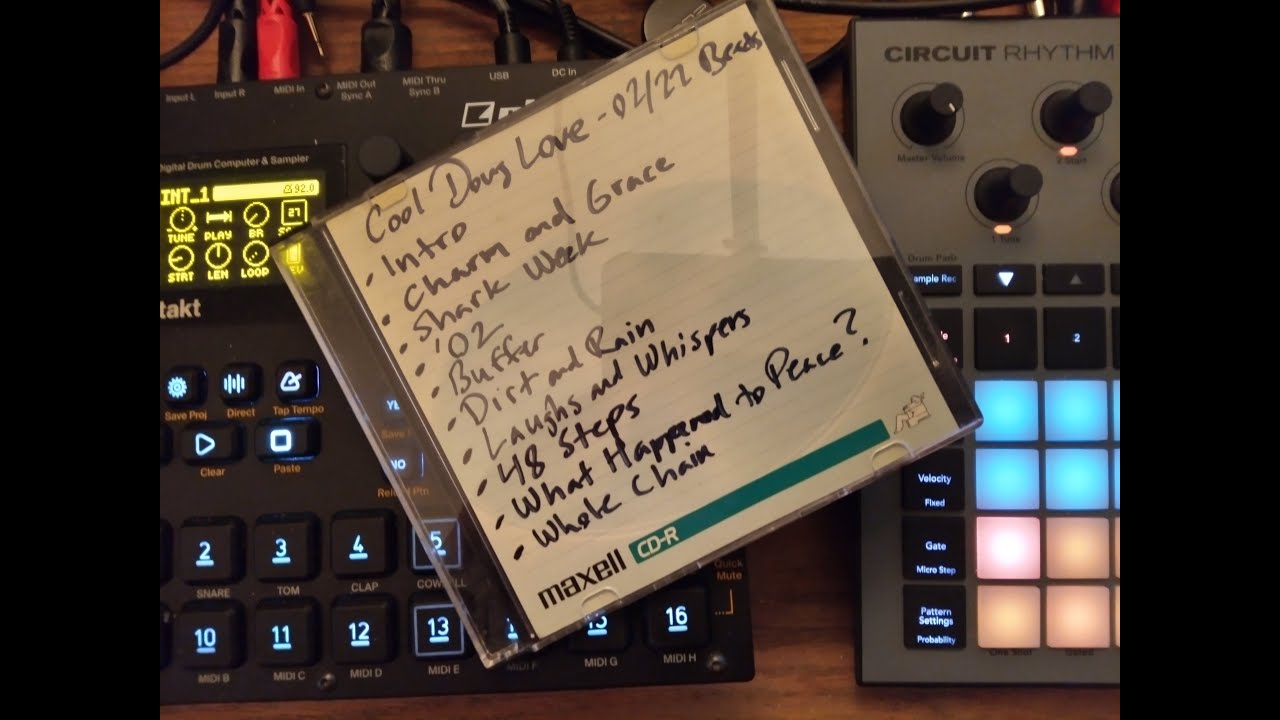 Input L Input R MIDI In MIDI Out Sync A MIDI Thru Sync B USB DC In
Digital Drum Computer & Sampler
INT_1 92.0
TUNE PLAY BR
STRT LEN LOOP
takt
Save Proj Direct Tap Tempo
Clear Paste
2 3 4 5
SNARE TOM CLAP
10 11 12 13 15 16
MIDI B MIDI C MIDI D MIDI E MIDI F MIDI G MIDI H
Quick Mute
Cool Doug Love - 02/22 Beats
• Intro
• Charm and Grace
• Shark Week
• '02
• Buffer
• Dirt and Rain
• Laughs and Whispers
• 48 Steps
• What Happened to Peace?
• Whole Chain
maxell CD-R
CIRCUIT RHYTHM
Master Volume
2 Start
1 Tune
Drum Pads
ample Rec
1 2
Velocity
Fixed
Gate
Micro Step
Pattern Settings
Probability
One Shot Gated